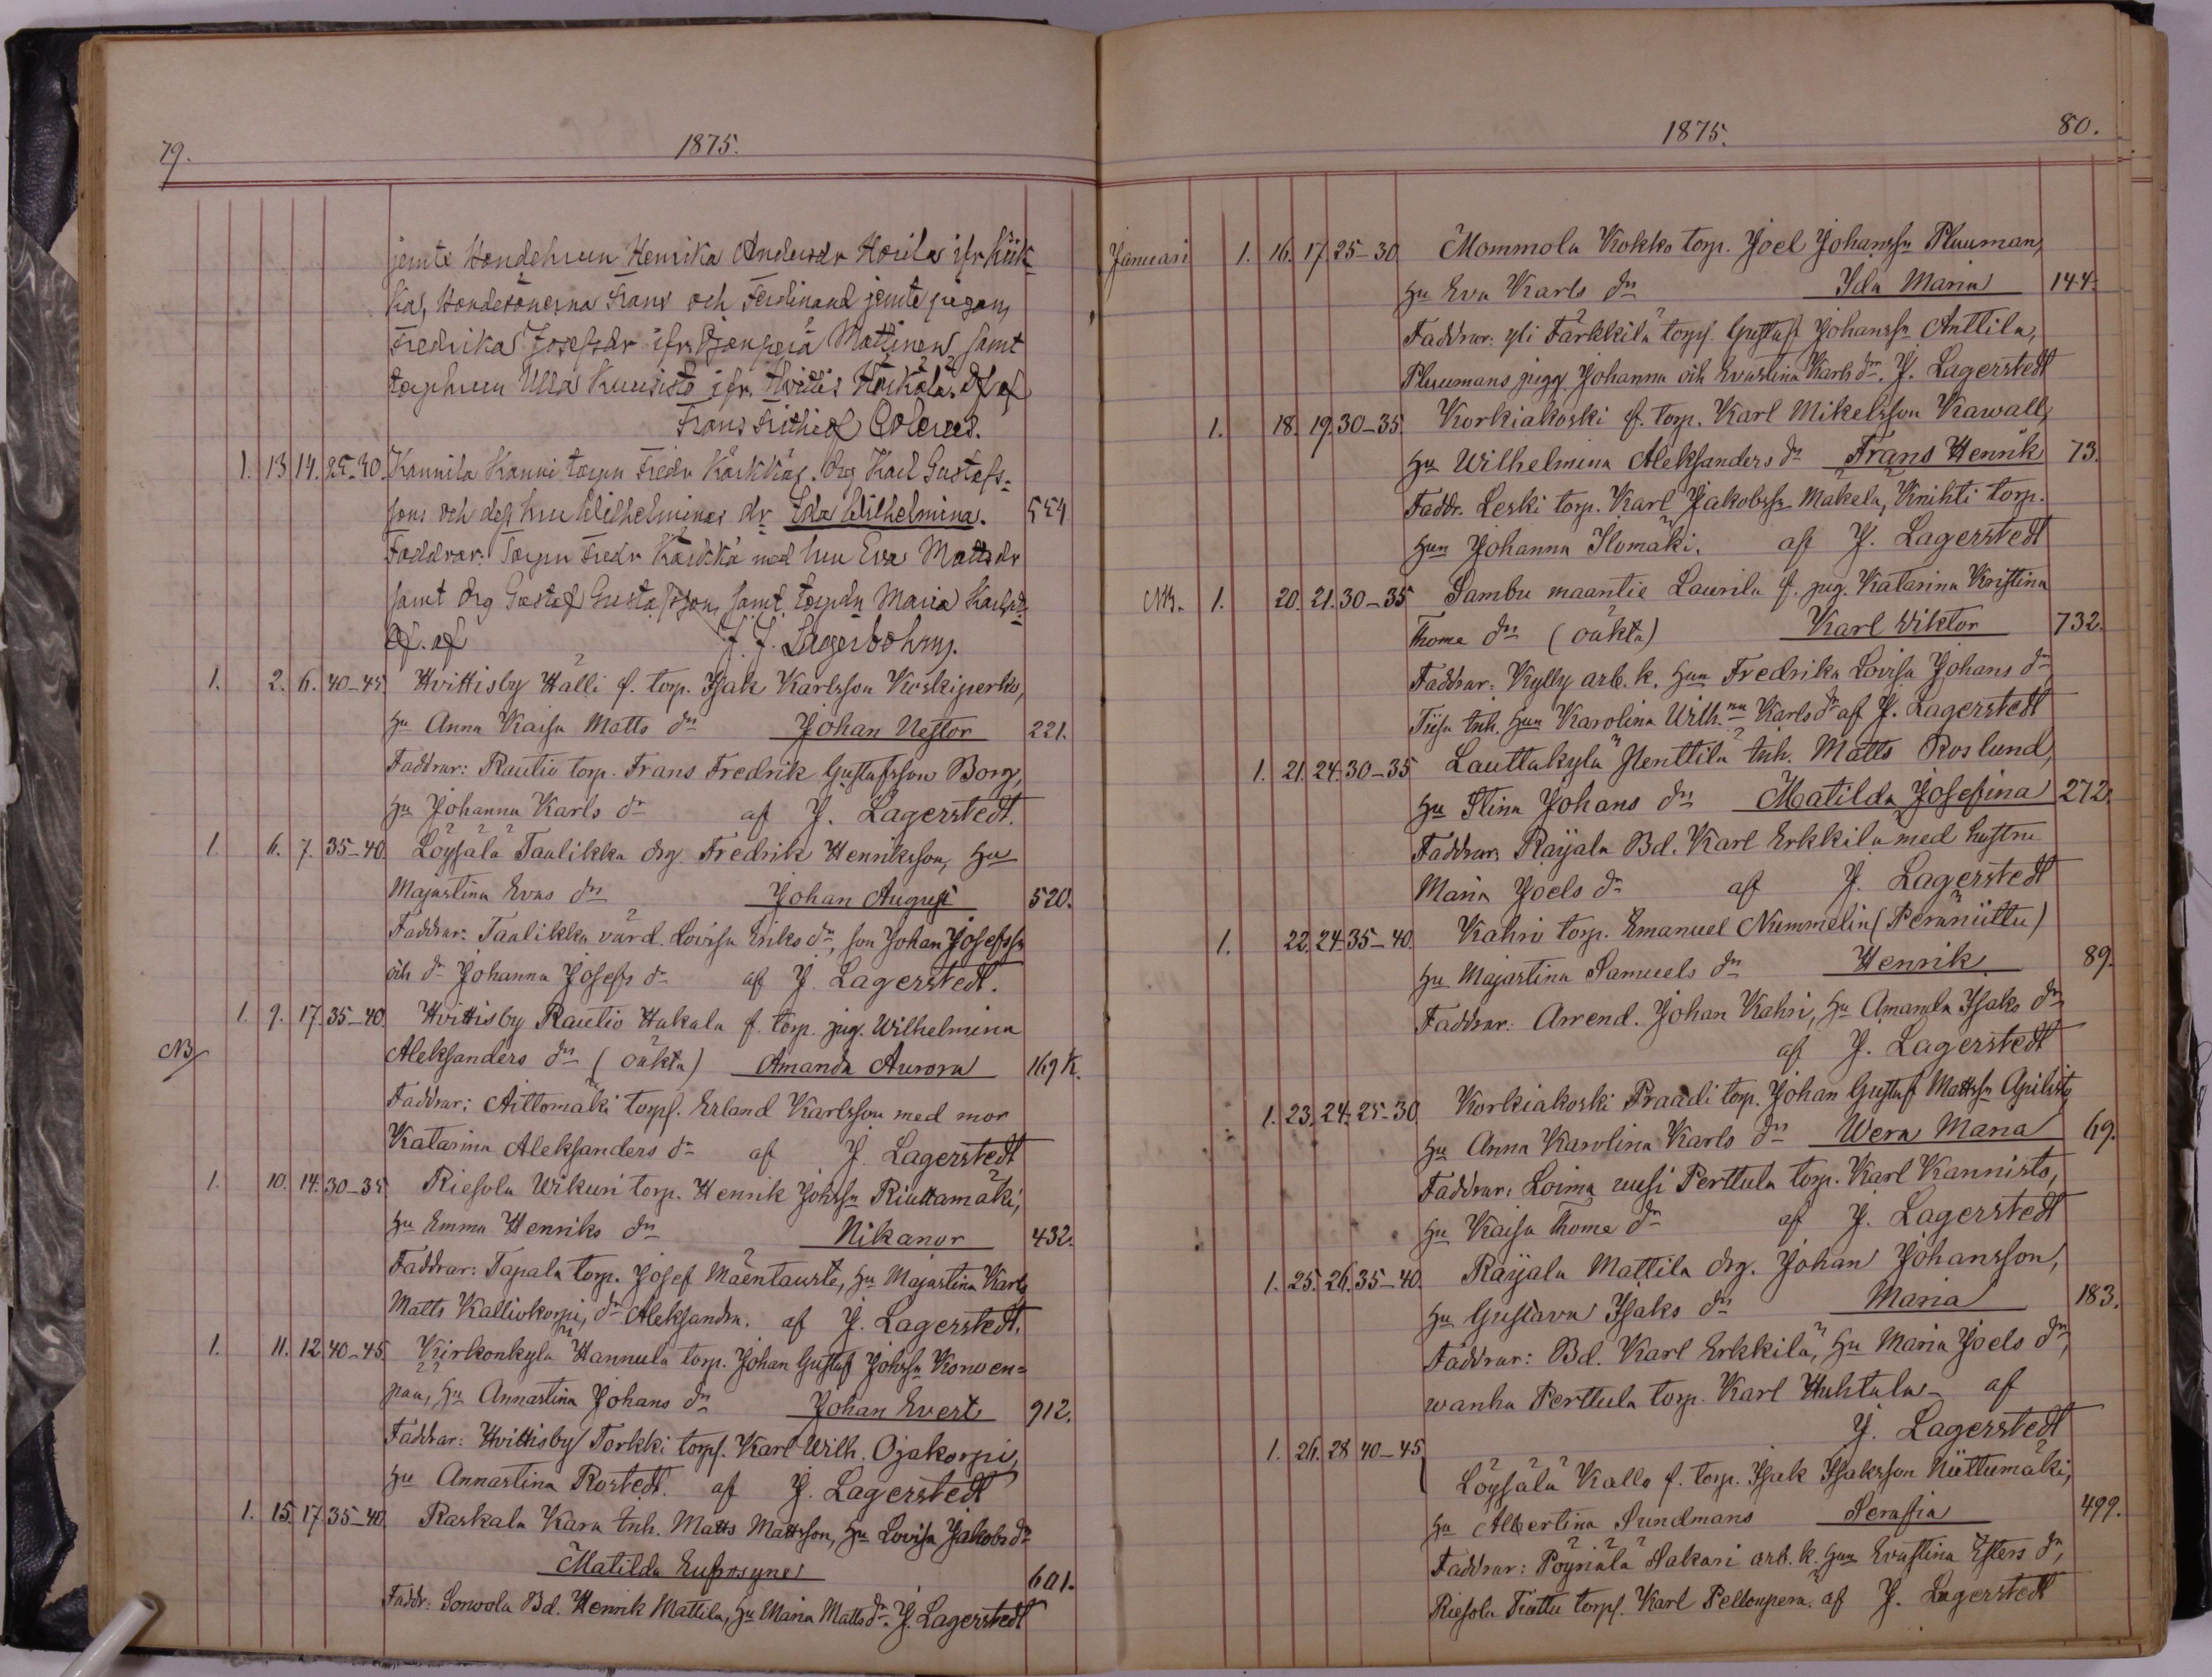 79. 1875.
jemte Bondehrun Henrika Andersdr Horila ifr Kiik-
ka, Bondesönerna Frans och Ferdinand jemte pigan
Fredrika Josefsdr ifr Mattinen samt
torphrun Ulla Kuusisto ifr. Hvittis df af
Frans Frithiof Colerus.
1. 13 14. 25-30. Kannila Kanni torpn Fredr Karkkas. drg Karl Gustafs-
sons och dess hru Wilhelminas dr Eda Wilhelmina. 554
Faddrar: Torpn Fredr Karkka med hru Eva Mattsdr
samt drg Gustaf Gustafsson, samt torpdn Maria Karlsd.
df. af J. F. Lagerbohm.
1. 2. 6. 40-45 Hvittisby Hälli f. torp. Isak Karlsson Koskiperko,
Hu Anna Kaisa Matts dn Johan Nestor 221.
Faddrar: Rautio torp. Frans Fredrik Gustafsson Borg,
Hu Johanna Karls dr af J. Lagerstedt.
1. 6. 7. 35-40 Löysälä Taalikka drg Fredrik Henriksson, Hu
Majastina Evas dn Johan August 520.
Faddrar: Taalikka värd. Lovisa Eriks dr, son Johan Josefssn
och dr Johanna Josefs dr af J. Lagerstedt.
1. 9. 17. 35-40 Hvittisby Rautio Hakala f. torp. pig. Wilhelmina
NB Aleksanders dn (oäkta) Amanda Aurora 169 K.
Faddrar: Aittomäki torps. Erland Karlsson med mor
Katarina Aleksanders dr af J. Lagerstedt
1. 10. 14. 30-35 Riesola Wikuri torp. Henrik Johssn Riuttamäki,
Hu Emma Henriks dn Nikanor 432.
Faddrar: Tapala torp. Josef Mäentausta, Hu Majastina Karls
Matts Kalliokorpi, dr Aleksandra. af J. Lagerstedt.
1. 11. 12 40-45 Kirkonkylä Hannula torp. Johan Gustaf Johssn Korven-
pää, Hu Annastina Johans dn Johan Evert 912.
Faddrar: Hvittisby Torkki torps. Karl Wilh. Ojakorpi,
Hu Annastina Rostedt. af J. Lagerstedt
1. 15. 17 35-40 Raskala Kara inh. Matts Mattsson, Hu Lovisa Jakobs dr
Matilda Eufrosyne 601.
Faddr: Sorvola Bd. Henrik Mattila, Hu Maria Matts dr. J. Lagerstedt
1875. 80.
Januari 1. 16. 17. 25-30 Mommola Kokko torp. Joel Johanssn Pluuman,
Hu Eva Karls dn Ida Maria 144.
Faddrar: yli Färkkilä torps. Gustaf Johanssn Anttila,
Pluumans pigg. Johanna och Evastina Karls dr. J. Lagerstedt
1. 18. 19. 30-35. Korkiakoski f. torp. Karl Mikelsson Kawall,
Hu Wilhelmina Aleksanders dn Frans Henrik 73.
Faddr. Leski torp. Karl Jakobssn Mäkelä, Knihti torp.
Hun Johanna Ilomäki. af J. Lagerstedt
NB. 1. 20. 21. 30-35 Sambu maantie Laurila f. pig. Katarina Kristina
Thome dn (oäkta) Karl Viktor 732.
Faddrar: Kylly arb. k. Hun Fredrika Lovisa Johans dr,
Tiisa inh. Hun Karolina Wilh.na Karls dr af J. Lagerstedt
1. 21. 24. 30-35 Lauttakylä Henttilä inh. Matts Roslund,
Hu Stina Johans dn Matilda Josefina 272.
Faddrar: Räijälä Bd. Karl Erkkilä med hustru
Maria Joels dr af J. Lagerstedt
1. 22. 24 35-40. Kahri torp. Emanuel Nummelin (Peräniittu)
Hu Majastina Samuels dn Henrik 89.
Faddrar: Arrend. Johan Kahri, Hu Amanda Isaks dr
af J. Lagerstedt
1. 23. 24. 25-30. Korkiakoski Praadi torp. Johan Gustaf Mattssn Apilisto,
Hu Anna Karolina Karls dn Wera Maria 69.
Faddrar: Loima uusi Perttula torp. Karl Kannisto,
Hu Kaisa Thome dr af J. Lagerstedt
1. 25. 26. 35-40. Räijälä Mattila drg. Johan Johansson,
Hu Gustava Isaks dn Maria 183.
Faddrar: Bd. Karl Erkkilä, Hu Maria Joels dr,
wanha Perttula torp. Karl Huhtala af
J. Lagerstedt
1. 26. 28 40-45 Löysälä Kallo f. torp. Isak Isaksson Niittumäki,
Hu Albertina Sundmans Serafia 499.
Faddrar: Pöyriälä Sakari arb. k. Hun Evastina Esters dr,
Riesola Fiuttu torps. Karl Peltonperä. af J. Lagerstedt